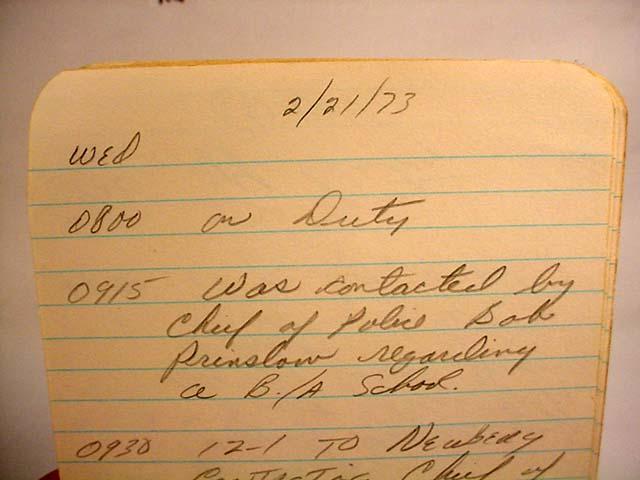 2/21/73
WED
0800 on Duty
0915 Was contacted by
Chief of Police Bob
Prinslow regarding
a B./A School.
0930 12-1 TO Newberg
Contacting Chief of